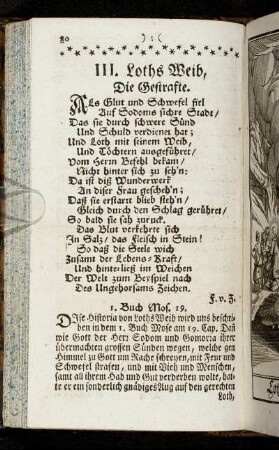 80 ):(
III. Loths Weib,
Die Gestrafte.
Als Glut und Schwefel fiel
Auf Sodoms sichre Stadt/
Das sie durch schwere Sünd
Und Schuld verdienet hat;
Und Loth mit seinem Weib,
Und Töchtern ausgeführet/
Vom Herrn Befehl bekam/
Nicht hinter sich zu seh'n:
Da ist diß Wunderwerk
An diser Frau gescheh'n;
Daß sie erstarrt blieb steh'n/
Gleich durch den Schlag gerühret/
So bald sie sah zuruck.
Das Blut verkehrte sich
In Salz/ das Fleisch in Stein!
So daß die Seele wich
Zusamt der Lebens-Kraft/
Und hinterließ im Weichen
Der Welt zum Beyspiel nach
Des Ungehorsams Zeichen.
F. v. Z.
1. Buch Mos. 19.
Dise Historia von Loths Weib wird uns beschri-
ben in dem 1. Buch Mose am 19. Cap. Dañ
wie Gott der Herr Sodom und Gomorra ihrer
übermachten grossen Sünden wegen, welche gen
Himmel zu Gott um Rache schreyen, mit Feur und
Schwefel strafen, und mit Vieh und Menschen,
samt all ihrem Hab und Gut verderben wolte, hat-
te er ein sonderlich gnädiges Aug auf den gerechten
Loth,